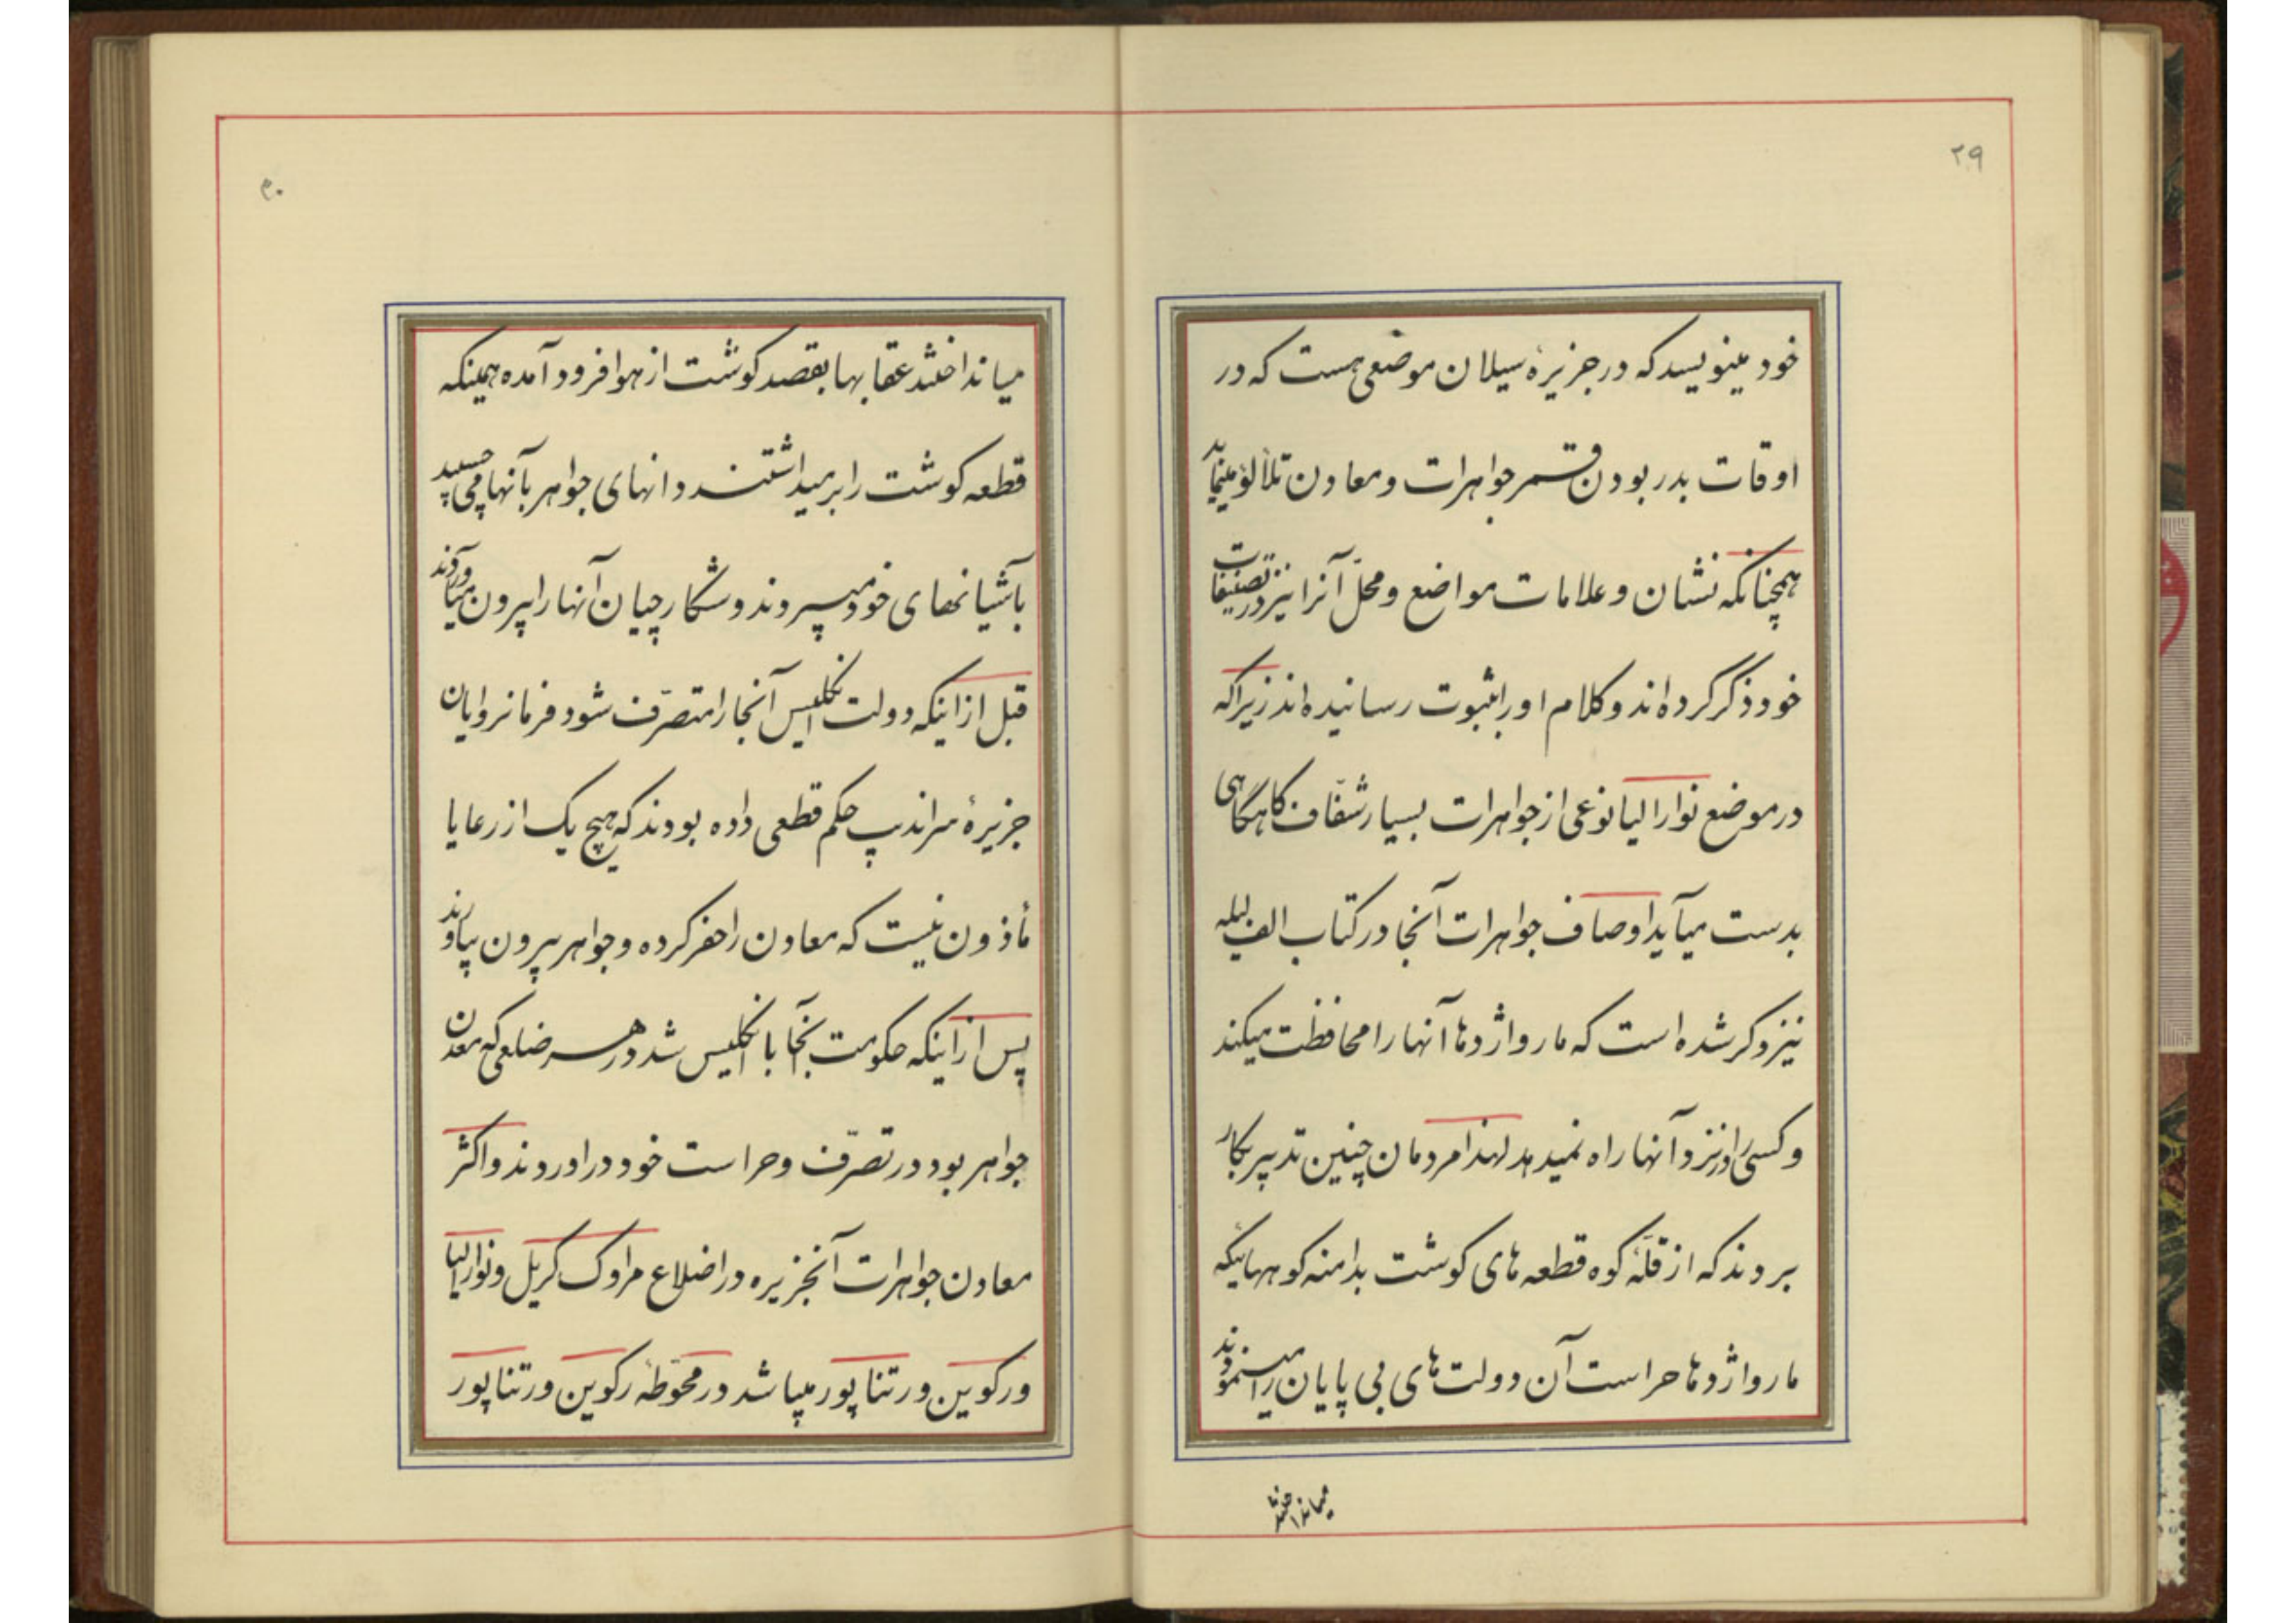 ۲۹
خود مینویسد که در جزیرهٔ سیلان موضعی هست که در
اوقات بدر بودن قمر جواهرات و معادن تلألؤ مینماید
همچنانکه نشان و علامات مواضع و محلّ آنرا نیز در تصنیفات
خود ذکر کرده اند و کلام او را بثبوت رسانیده اند زیرا که
در موضع نوارا لیا نوعی از جواهرات بسیار شفّاف گاهگاهی
بدست میآید اوصاف جواهرات آنجا در کتاب الف لیله
نیز ذکر شده است که مار و اژدها آنها را محافظت میکند
و کسی را در نزد آنها راه نمیدهد لهذا مردمان چنین تدبیر بکار
بردند که از قلّهٔ کوه قطعه های گوشت بدامنه کوههائیکه
مار و اژدها حراست آن دولت های بی پایان را مینمودند
میانداختند
۳۰
میانداختند عقابها بقصد گوشت از هوا فرود آمده همینکه
قطعه گوشت را برمیداشتند دانهای جواهر بآنها می چسپید
بآشیانهای خود میبردند و شکارچیان آنها را بیرون میآوردند
قبل از اینکه دولت انگلیس آنجا را متصرّف شود فرمانروایان
جزیرهٔ سراندیب حکم قطعی داده بودند که هیچ یک از رعایا
مأذون نیست که معادن را حفر کرده و جواهر بیرون بیاورند
پس از اینکه حکومت آنجا با انگلیس شد در هر ضلعی که معدن
جواهر بود در تصرّف و حراست خود در اوردند و اکثر
معادن جواهرات آنجزیره در اضلاع مراوک کریل و نوارا لیا
و رکوین و رتناپور میباشد در محوّطهٔ رکوین و رتناپور